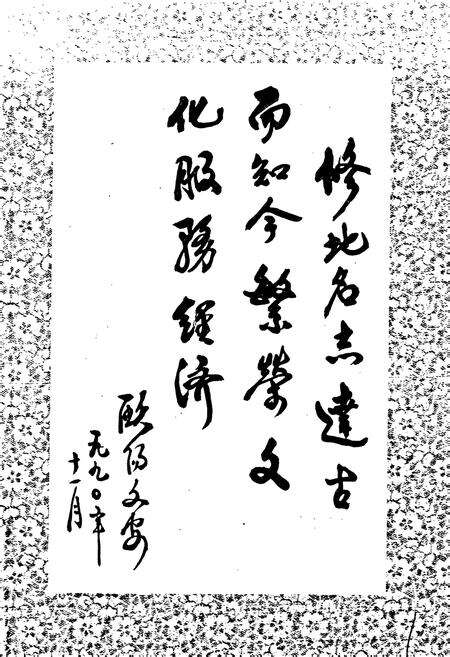 修地名志達古
而知今繁榮文
化服務經济
欧阳文安
一九九〇年
十一月